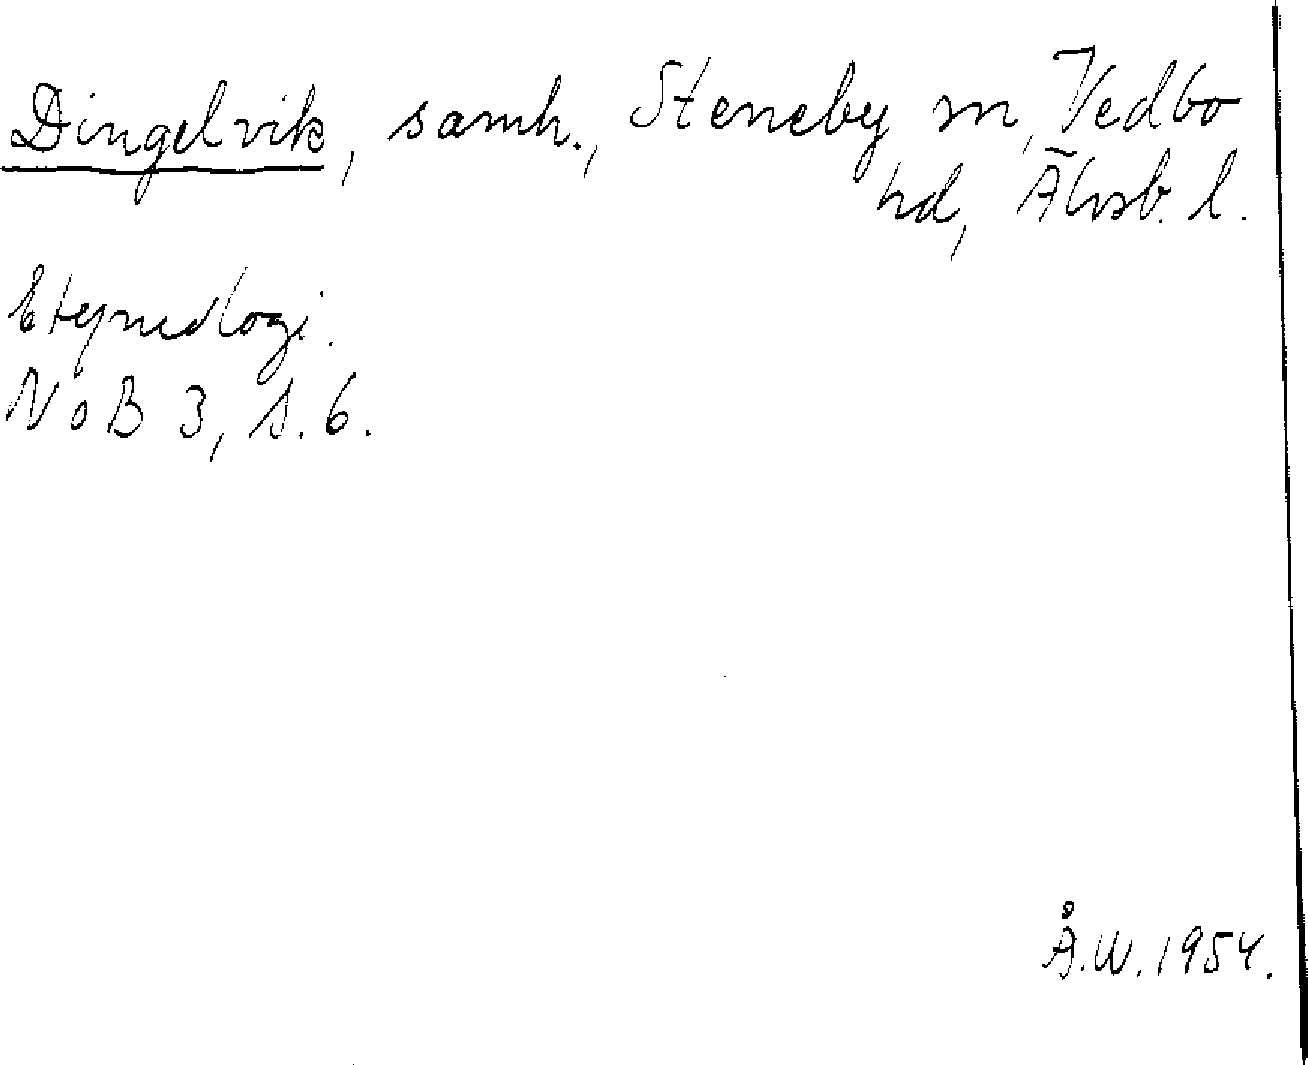 Dingelvik, samh., Steneby sn, Vedbo
hd, Älvsb. l.
Etymologi.
NoB 3, s. 6.
Å.W. 1954.